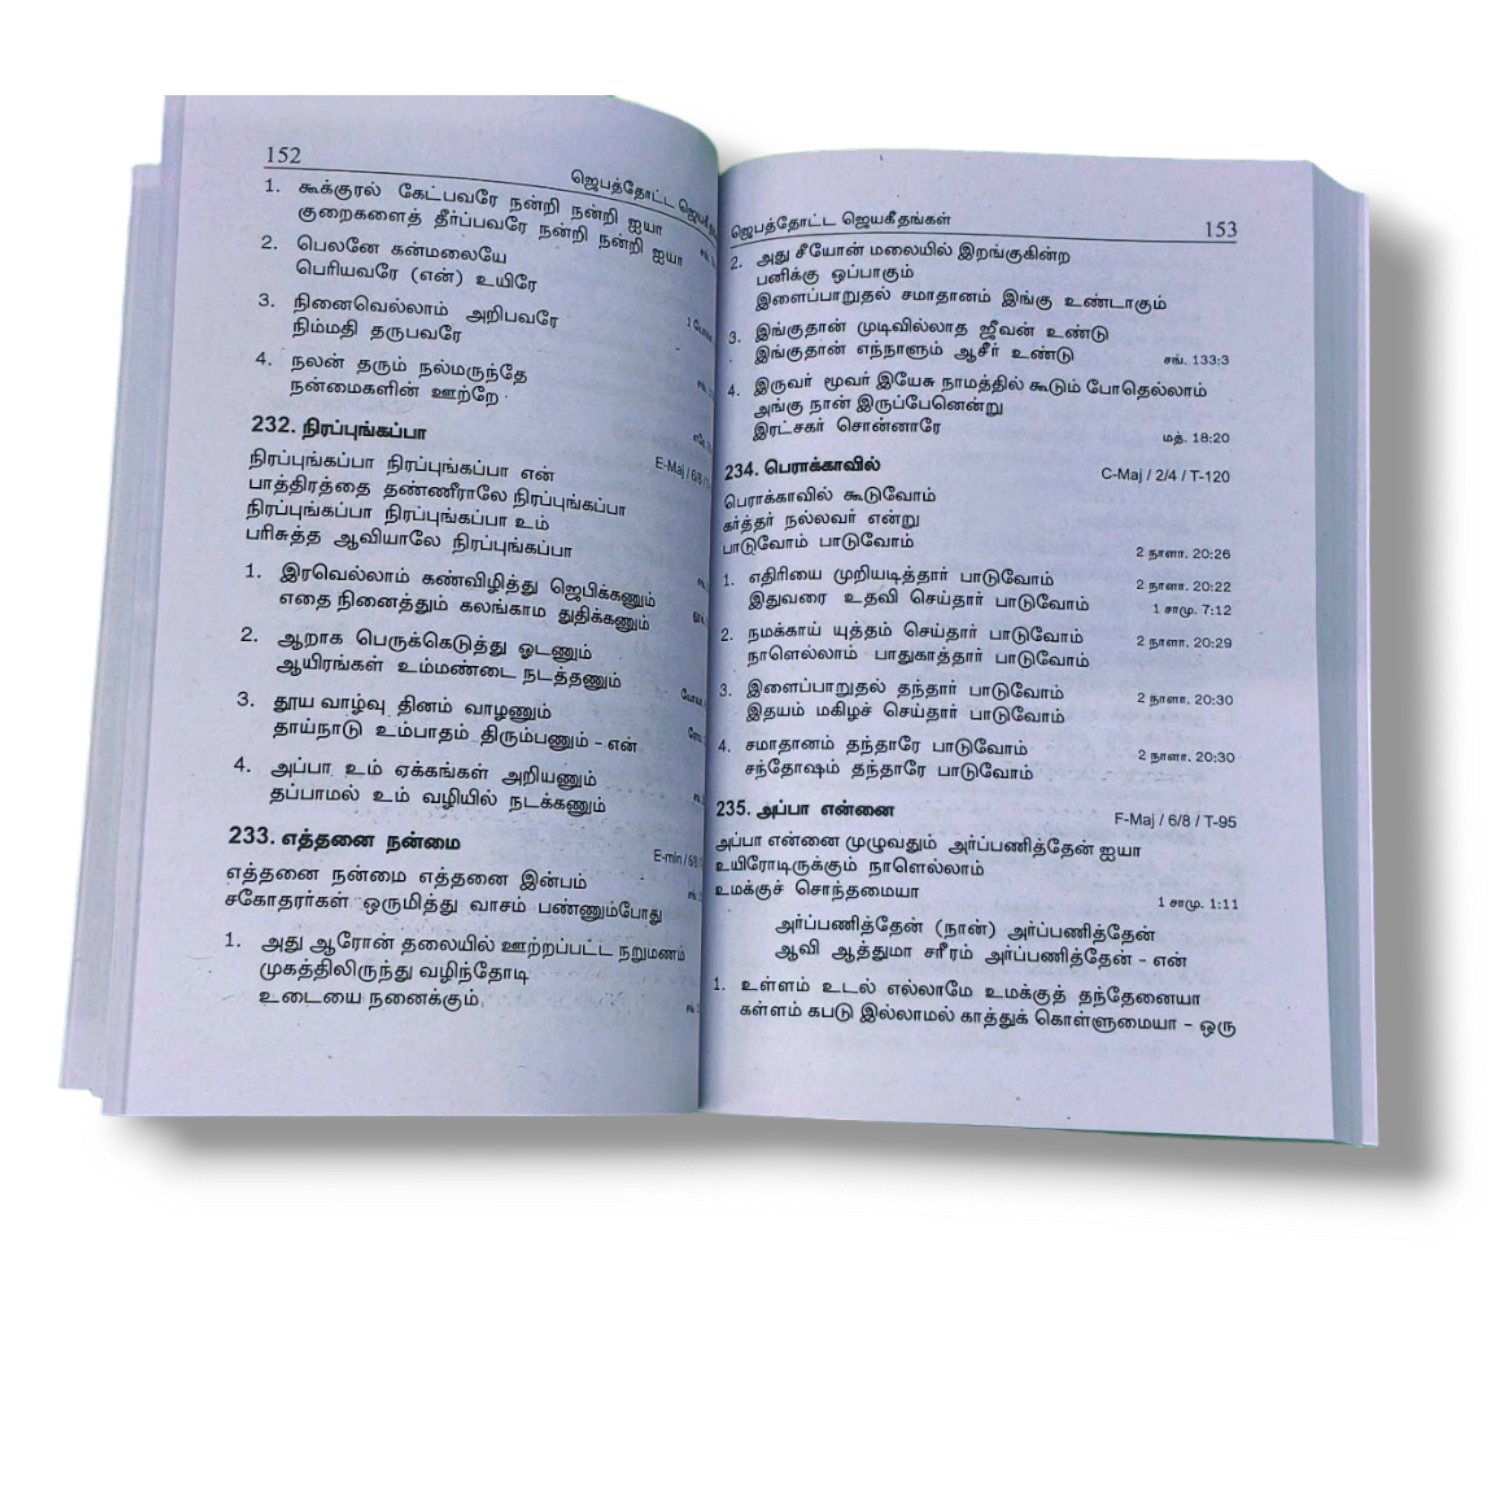 152
ஜெபத்தோட்ட
1. கூக்குரல் கேட்பவரே நன்றி நன்றி ஐயா
குறைகளைத் தீர்ப்பவரே நன்றி நன்றி ஐயா
2. பெலனே கன்மலையே
பெரியவரே (என்) உயிரே
3. நினைவெல்லாம் அறிபவரே
நிம்மதி தருபவரே
4. நலன் தரும் நல்மருந்தே
நன்மைகளின் ஊற்றே
232. நிரப்புங்கப்பா
E-Maj / 6/8 /
நிரப்புங்கப்பா நிரப்புங்கப்பா என்
பாத்திரத்தை தண்ணீராலே நிரப்புங்கப்பா
நிரப்புங்கப்பா நிரப்புங்கப்பா உம்
பரிசுத்த ஆவியாலே நிரப்புங்கப்பா
1. இரவெல்லாம் கண்விழித்து ஜெபிக்கணும்
எதை நினைத்தும் கலங்காம துதிக்கணும்
2. ஆறாக பெருக்கெடுத்து ஓடணும்
ஆயிரங்கள் உம்மண்டை நடத்தணும்
3. தூய வாழ்வு தினம் வாழணும்
தாய்நாடு உம்பாதம் திரும்பணும் - என்
4. அப்பா உம் ஏக்கங்கள் அறியணும்
தப்பாமல் உம் வழியில் நடக்கணும்
233. எத்தனை நன்மை
E-min / 6/8
எத்தனை நன்மை எத்தனை இன்பம்
சகோதரர்கள் ஒருமித்து வாசம் பண்ணும்போது
1. அது ஆரோன் தலையில் ஊற்றப்பட்ட நறுமணம்
முகத்திலிருந்து வழிந்தோடி
உடையை நனைக்கும்
ஜெபத்தோட்ட ஜெயகீதங்கள் 153
2. அது சீயோன் மலையில் இறங்குகின்ற
பனிக்கு ஒப்பாகும்
இளைப்பாறுதல் சமாதானம் இங்கு உண்டாகும்
3. இங்குதான் முடிவில்லாத ஜீவன் உண்டு
இங்குதான் எந்நாளும் ஆசீர் உண்டு சங். 133:3
4. இருவர் மூவர் இயேசு நாமத்தில் கூடும் போதெல்லாம்
அங்கு நான் இருப்பேனென்று
இரட்சகர் சொன்னாரே மத். 18:20
234. பெராக்காவில் C-Maj / 2/4 / T-120
பெராக்காவில் கூடுவோம்
கர்த்தர் நல்லவர் என்று
பாடுவோம் பாடுவோம் 2 நாளா. 20:26
1. எதிரியை முறியடித்தார் பாடுவோம் 2 நாளா. 20:22
இதுவரை உதவி செய்தார் பாடுவோம் 1 சாமு. 7:12
2. நமக்காய் யுத்தம் செய்தார் பாடுவோம் 2 நாளா. 20:29
நாளெல்லாம் பாதுகாத்தார் பாடுவோம்
3. இளைப்பாறுதல் தந்தார் பாடுவோம் 2 நாளா. 20:30
இதயம் மகிழச் செய்தார் பாடுவோம்
4. சமாதானம் தந்தாரே பாடுவோம் 2 நாளா. 20:30
சந்தோஷம் தந்தாரே பாடுவோம்
235. அப்பா என்னை F-Maj / 6/8 / T-95
அப்பா என்னை முழுவதும் அர்ப்பணித்தேன் ஐயா
உயிரோடிருக்கும் நாளெல்லாம்
உமக்குச் சொந்தமையா 1 சாமு. 1:11
அர்ப்பணித்தேன் (நான்) அர்ப்பணித்தேன்
ஆவி ஆத்துமா சரீரம் அர்ப்பணித்தேன் - என்
1. உள்ளம் உடல் எல்லாமே உமக்குத் தந்தேனையா
கள்ளம் கபடு இல்லாமல் காத்துக் கொள்ளுமையா - ஒரு